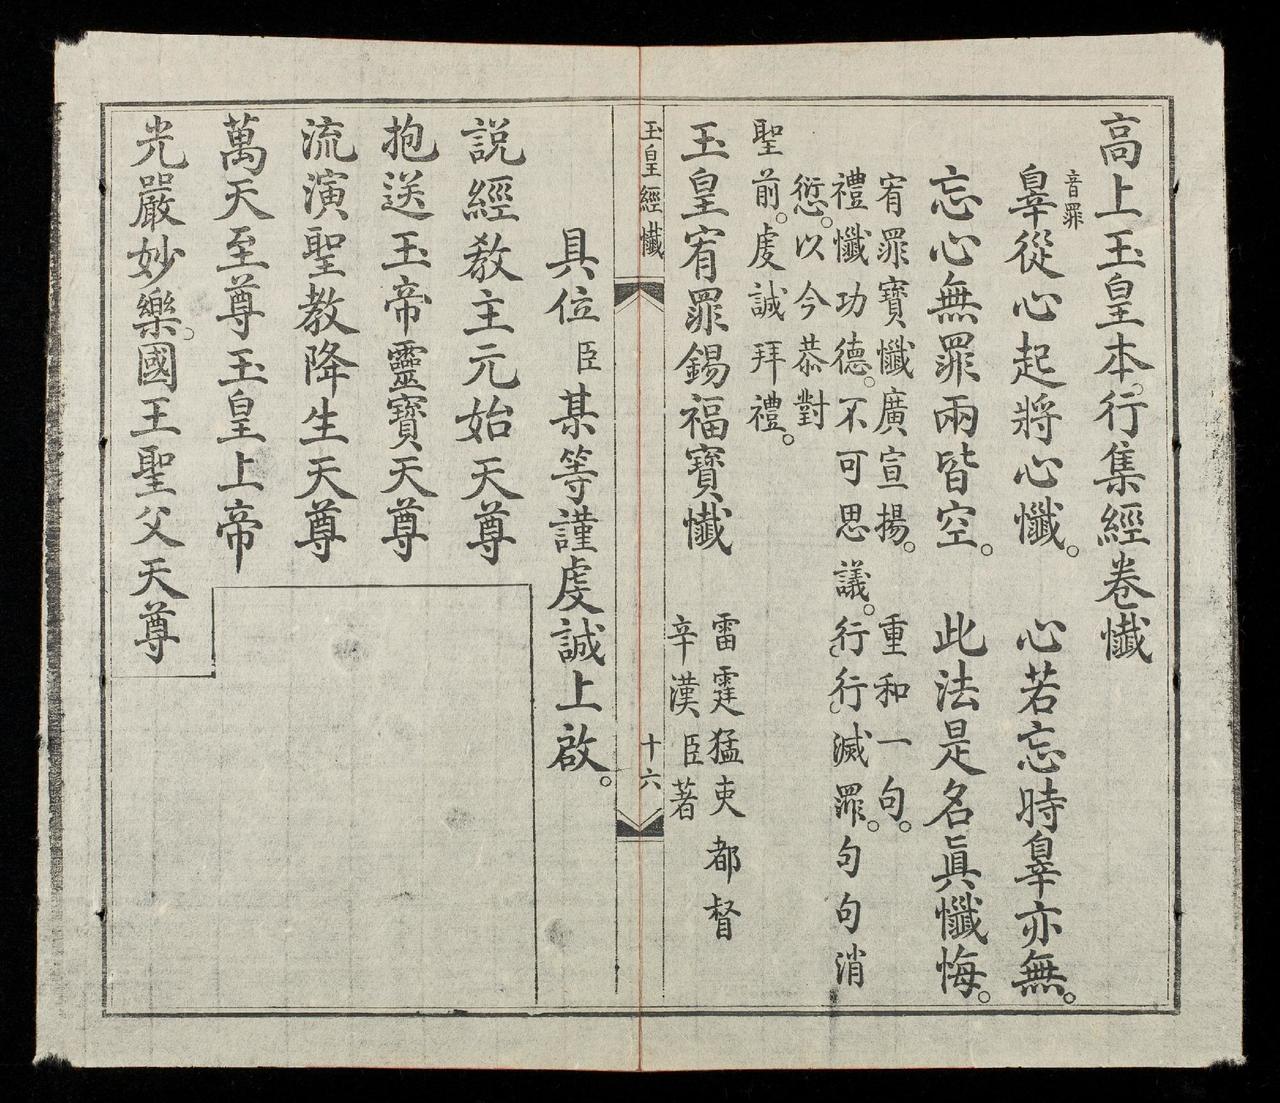 高上玉皇本。行集經卷懺
辠音罪從心起將心懺。心若忘時辠亦無。
忘心無罪兩皆空。此法是名眞懺悔。
宥罪寶懺廣宣揚。重和一句。
禮懺功德。不可思議。行行滅罪。句句消
愆。以今恭對
聖前。虔誠拜禮。
玉皇宥罪錫福寶懺
雷霆猛吏都督
辛漢臣著
玉皇經懺
十六
具位臣某等謹虔誠上啟。
説經教主元始天尊
抱送玉帝靈寶天尊
流演聖教降生天尊
萬天至尊玉皇上帝
光嚴妙樂。國王聖父天尊